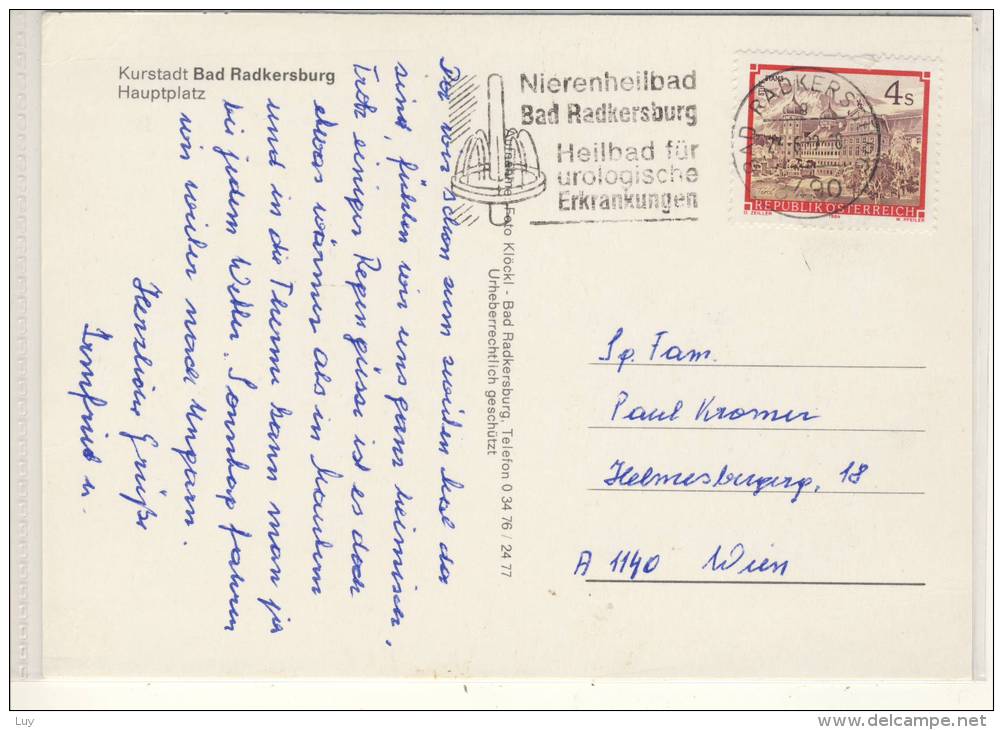 Kurstadt Bad Radkersburg
Hauptplatz
Nierenheilbad
Bad Radkersburg
Heilbad für
urologische
Erkrankungen
BAD RADKERSBURG
490
4 S
REPUBLIK ÖSTERREICH
O. ZEILLER 1984 W. PFEILER
Aufnahme: Foto Klöckl - Bad Radkersburg, Telefon 0 34 76 / 24 77
Urheberrechtlich geschützt
Da wir schon zum zweiten Mal da
sind, fühlen wir uns ganz heimisch,
trotz einiger Regengüsse ist es doch
etwas wärmer als in
und in die Therme kann man ja
bei jedem Wetter. Sonntag fahren
wir wieder nach Ungarn.
Herzliche Grüße
Irmfried u.
Sg. Fam.
Paul Kromer
Helmesbergerg. 18
A 1140 Wien
Luy
www.delcampe.net